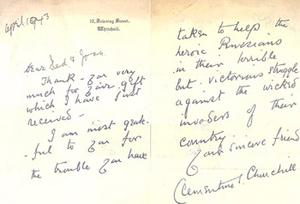 April 1943
10, Downing Street,
Whitehall.
Dear
Thank you very
much for your gift
which I have just
received —
I am most grate
- ful to you for
the trouble you have
taken to help the
heroic Russians
in their terrible
but victorious struggle
against the wicked
invaders of their
country
Your sincere friend
Clementine S. Churchill